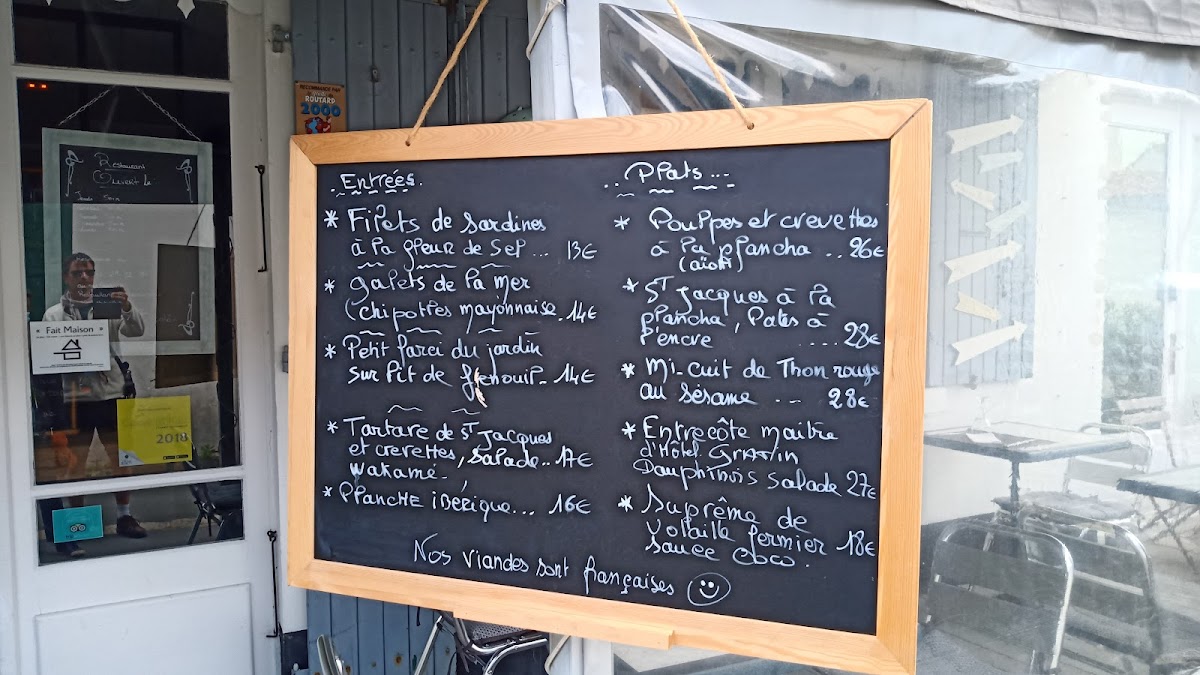 Restaurant
Ouvert le
Fait Maison
2018
RECOMMANDÉ PAR
ROUTARD
2000
Entrées.
* Filets de sardines
à la fleur de sel ... 13€
* galets de la mer
(chipotles mayonnaise. 14€
* Petit farci du jardin
sur lit de fenouil. 14€
* Tartare de St Jacques
et crevettes, salade.. 17€
wakamé.
* PLANCHE ibérique... 16€
.. Plats ...
* Poulpes et crevettes
à la plancha .. 26€
(aïoli)
* St Jacques à la
plancha, Pates à
l'encre .... 28€
* Mi-cuit de Thon rouge
au sésame ... 28€
* Entrecôte maitre
d'Hôtel Gratin
Dauphinois salade 27€
* Suprême de
Volaille fermier 18€
sauce coco.
Nos viandes sont françaises